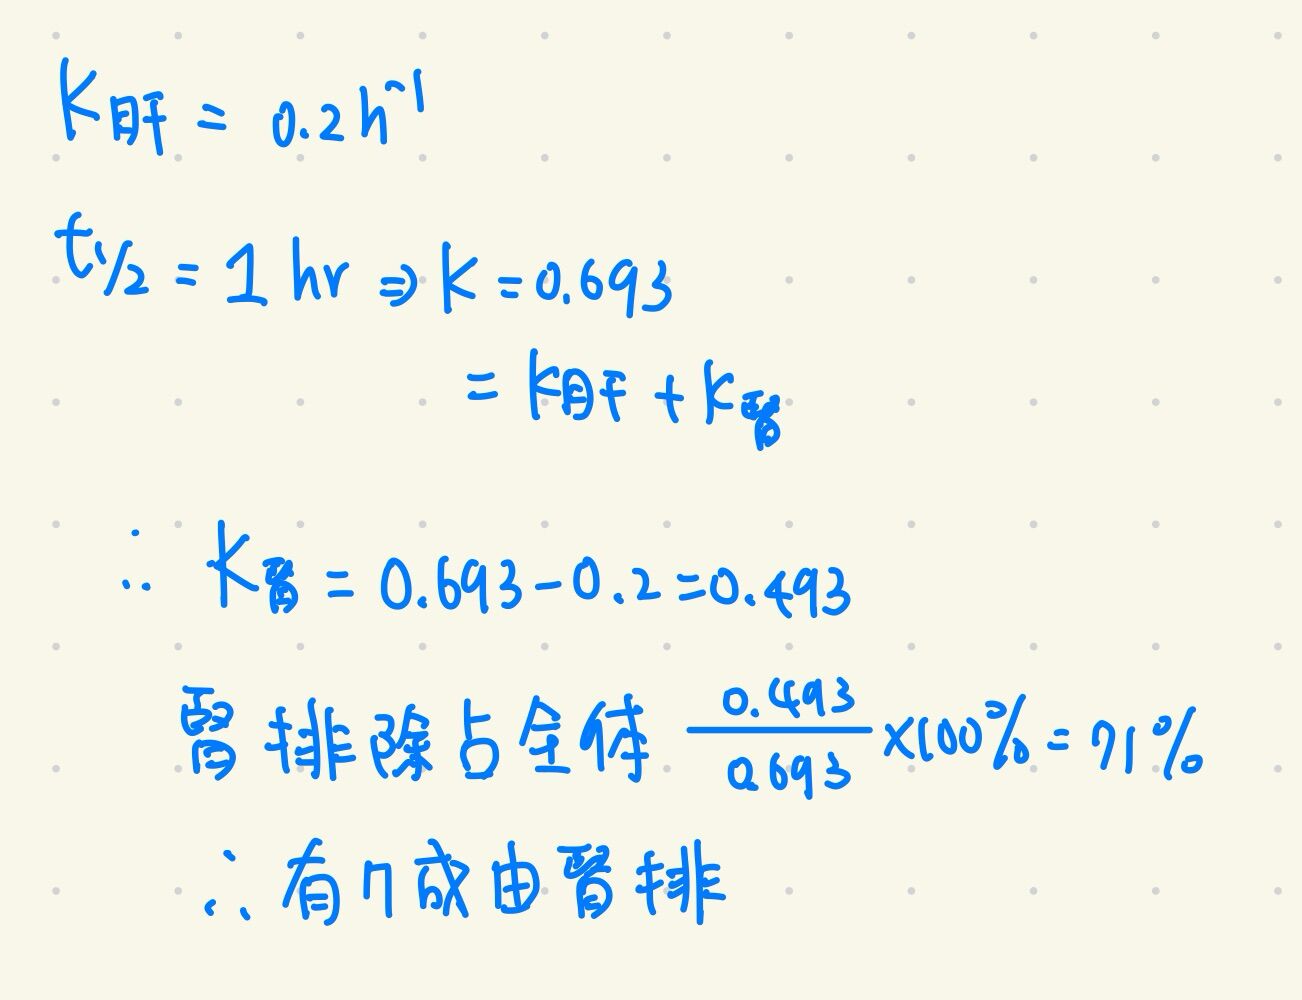 K肝 = 0.2 h⁻¹
t1/2 = 1 hr ⇒ K = 0.693
= K肝 + K腎
∴ K腎 = 0.693 - 0.2 = 0.493
腎排除占全体 0.493/0.693 ×100% = 71%
∴ 有7成由腎排